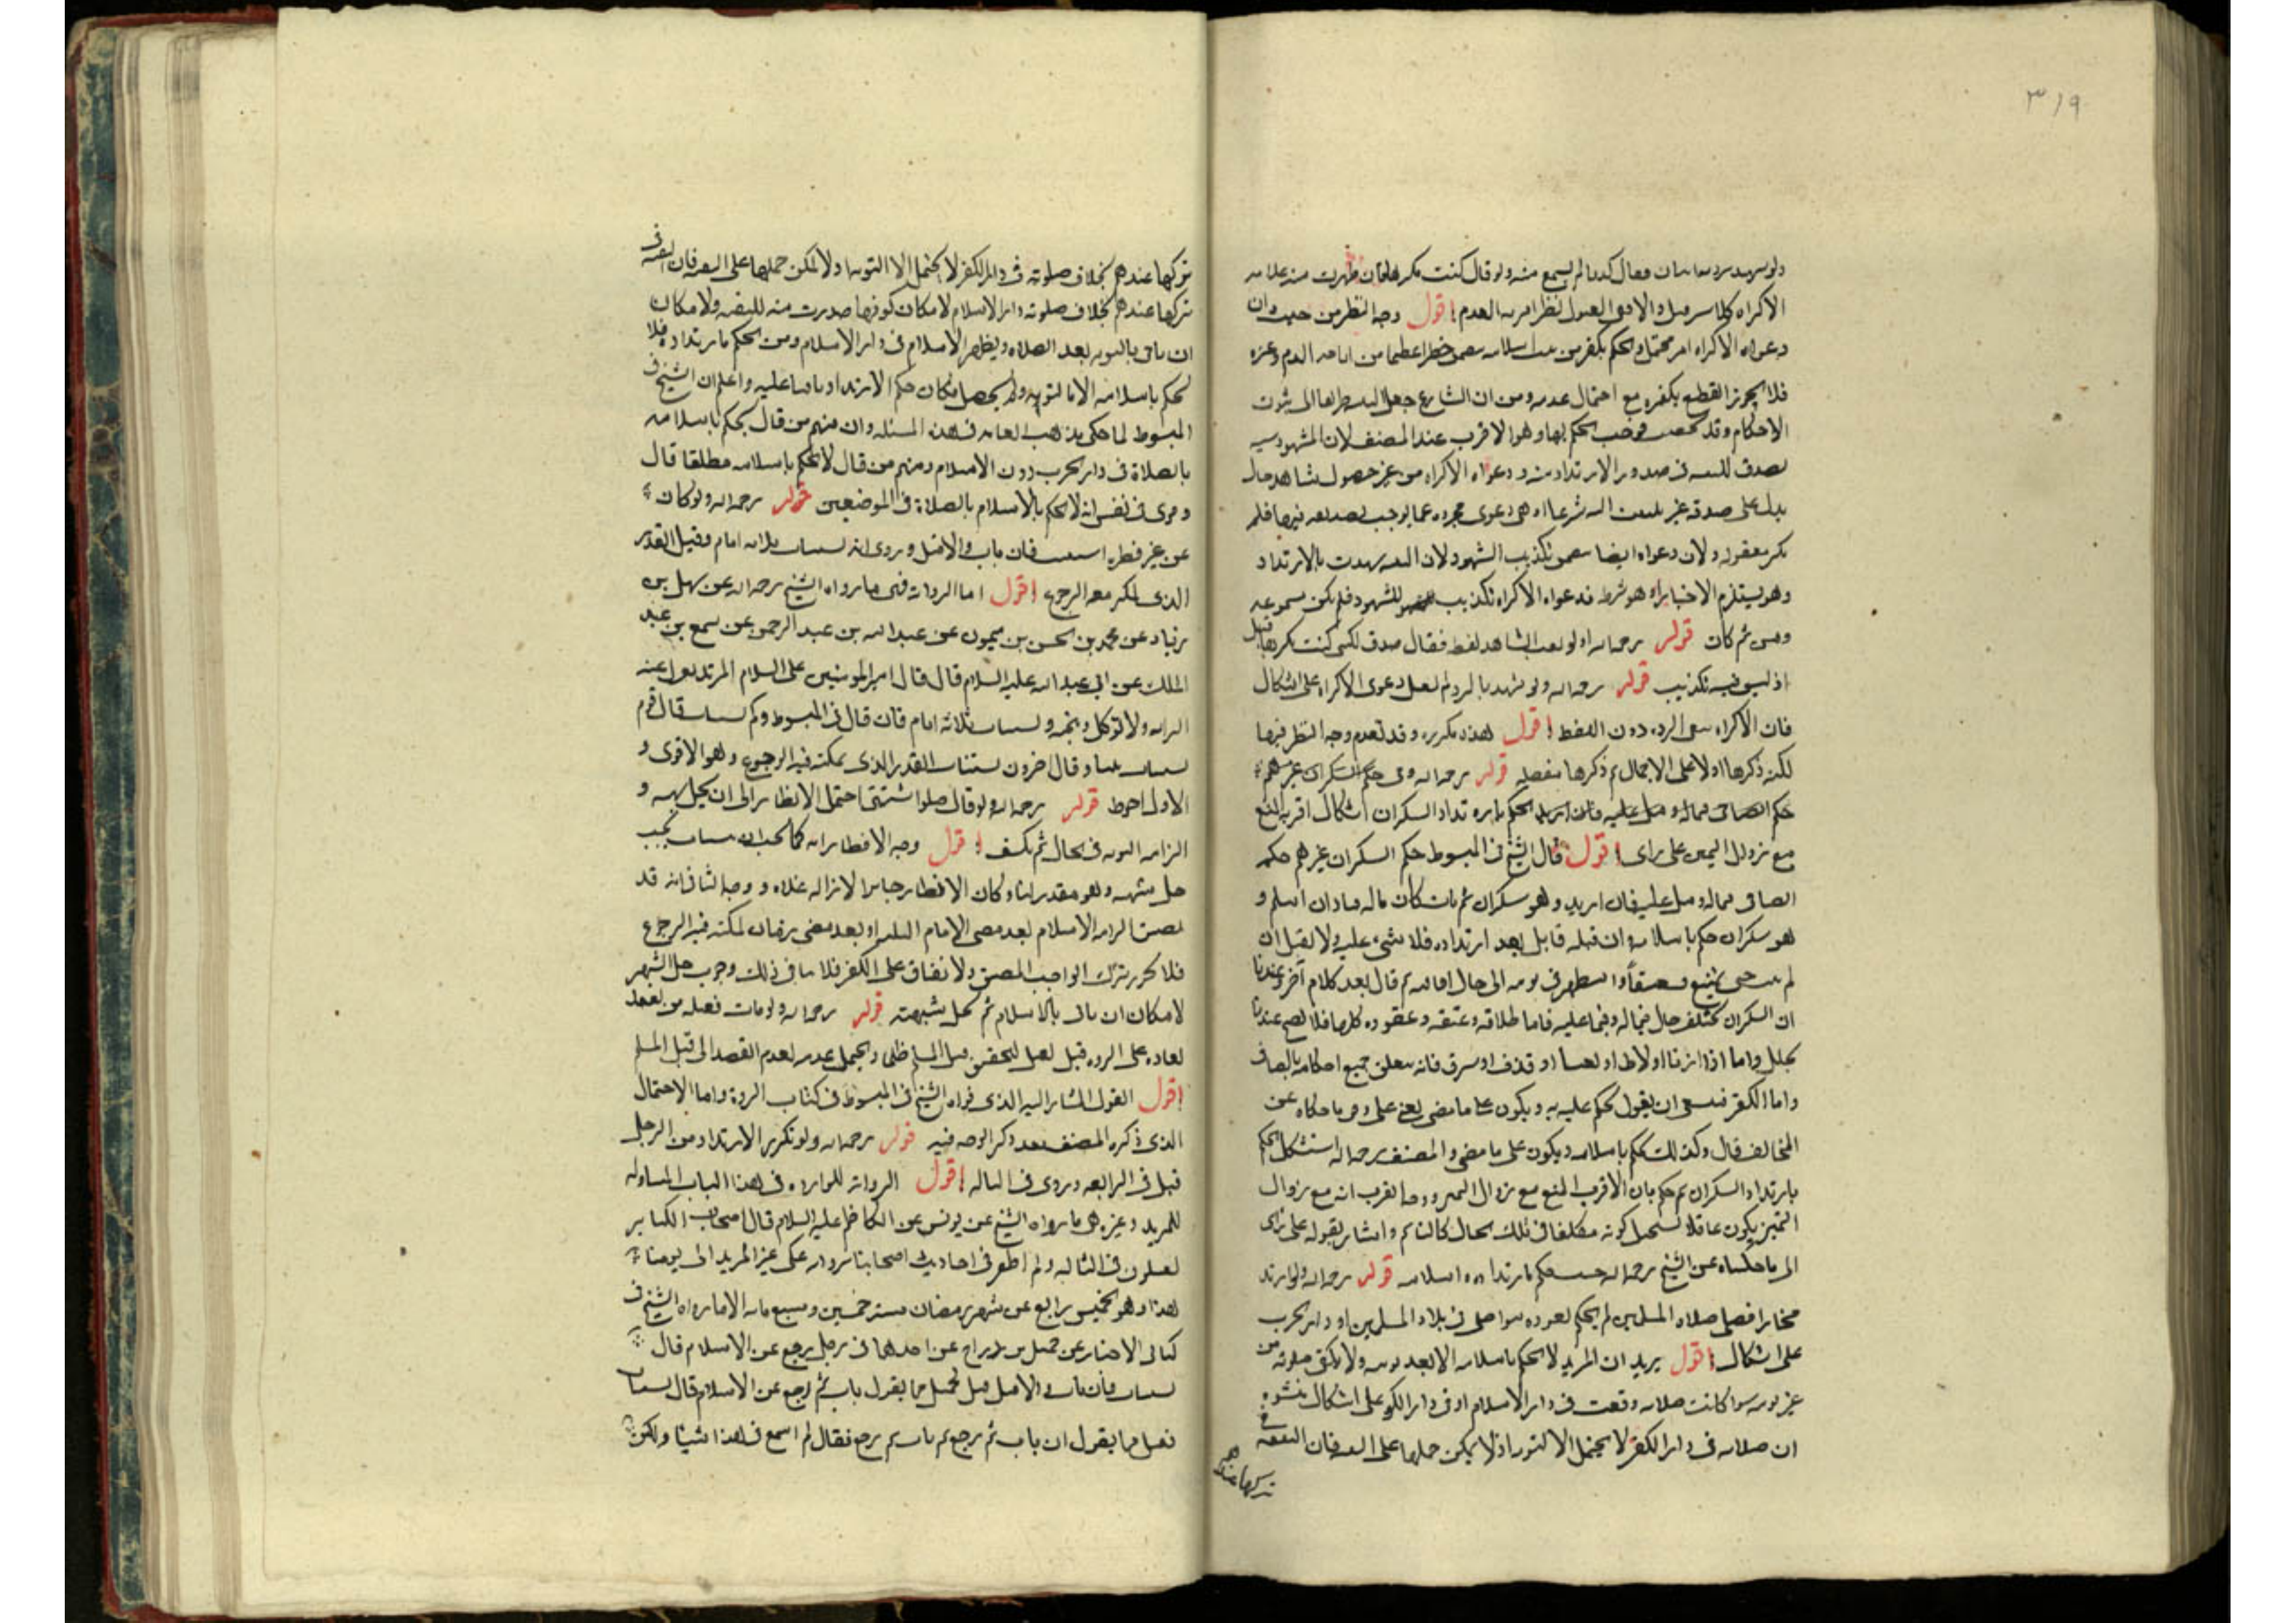 ٣١٩
فقال كذبا لم يسمع منه ولو قال كنت مكرها فان ظهرت منه علامه
الاكراه كالاسر قبل والا ففى القبول نظر اقربه العدم اقول وجه النظر من حيث ان
دعواه الاكراه امر محتمل والحكم بكفر من اسلامه خطرا عظيما من اباحه الدم وغيره
فلا يجوز القطع بكفره مع احتمال عدمه ومن ان الشارع جعل البينه طريقا الى ثبوت
الاحكام وقد فوجب الحكم بها وهو الاقرب عند المصنف لان المشهود
فى صدور الارتداد منه ودعواه الاكراه من غير حصول شاهد حال
يدل على صدقه غير شرعا اذ هى دعوى مجرده عما يوجب تصديقه فيها فلم
مقبوله ولان دعواه ايضا تكذيب الشهود لان البينه شهدت بالارتداد
وهو يستلزم الاختيار اذ هو شرط فدعواه الاكراه تكذيب للشهود فلم تكن مسموعه
ومن ثم كان قوله رحمه الله لو نقل الشاهد لفظه فقال صدق لكنى كنت مكرها قبل
اذ ليس فيه تكذيب قوله رحمه الله ولو شهد بالرده لم تقبل دعوى الاكراه على اشكال
فان الاكراه ينفى الرده دون اللفظ اقول هذه مكرره وقد تقدم وجه النظر فيها
لكنه ذكرها اولا على الاجمال ثم ذكرها مفصله قوله رحمه الله وفى حكم السكران غيرهم
حكم الصاحى فيما له و عليه فان اريد الحكم بارتداد السكران اشكال اقربه المنع
مع زوال التميز على راى اقول قال الشيخ فى المبسوط حكم السكران غيرهم حكم
الصاحى فيما له و عليه فان ارتد وهو سكران ثم مات كان ماله وان اسلم و
هو سكران حكم باسلامه وان قتله قاتل بعد ارتداده فلا شىء عليه ولا يقبل ان
لم الى حال افاقته ثم قال بعد كلام آخر وعندنا
ان السكران يختلف حال فيما له وفيما عليه فاما طلاقه وعتقه وعقوده كلها فلا تصح عندنا
بحال واما اذا زنا او لاط او او قذف او سرق فانه يتعلق جميع احكامه بالصاحى
واما الكفر فينبغى ان يقول يحكم عليه به ويكون على ما مضى يعنى على ما حكاه عن
المخالف قال وكذلك يحكم باسلامه ويكون على ما مضى والمصنف رحمه الله استشكل الحكم
بارتداد السكران ثم حكم بان الاقرب المنع مع زوال التميز ووجه القرب انه مع زوال
التميز يكون عاقلا يستحيل كونه مكلفا فى تلك الحال كالنائم واشار بقوله على راى
الى ما حكيناه عن الشيخ رحمه الله حيث حكم بارتداده واسلامه قوله رحمه الله ولو ارتد
مختارا فصلى صلاه المسلمين لم يحكم بعوده سوا صلى فى بلاد المسلمين او دار الحرب
على اشكال اقول يريد ان المرتد لا يحكم باسلامه الا بعد توبته ولا يكفى صلوته من
غير توبه سوا كانت صلاته وقعت فى دار الاسلام او فى دار الكفر على اشكال ينشوء
ان صلاته فى دار الكفر لا يحتمل الا التوبه اذ لا يمكن حملها على التقيه فان التقيه فى
تركها عندهم
تركها عندهم بخلاف صلوته فى دار الكفر لا يحتمل الا التوبه اذ لا يمكن حملها على التقيه فان التقيه فى
تركها عندهم بخلاف صلوته دار الاسلام لامكان كونها صدرت منه للتقيه ولامكان
ان ياتى بالتوبه بعد الصلاه ويظهر الاسلام فى دار الاسلام ومن الحكم بارتداده فلا
يحكم باسلامه الا بالتوبه ولم يحصل فكان حكم الارتداد باقيا عليه واعلم ان الشيخ فى
المبسوط لما حكى مذهب العامه فى هذه المسئله وان منهم من قال يحكم باسلامه
بالصلاة فى دار الحرب دون الاسلام ومنهم من قال لا يحكم باسلامه مطلقا قال
وقوى فى نفسى انه لا يحكم بالاسلام بالصلاة فى الموضعين قوله رحمه الله ولو كان
عن غير فطره استتيب فان تاب والا قتل وروى انه يستتاب ثلاثه ايام وقيل القدر
الذى يمكن معه الرجوع اقول اما الروايه فهى ما رواه الشيخ رحمه الله عن سهل بن
زياد عن محمد بن الحسن بن ميمون عن عبد الله بن عبد الرحمن عن مسمع بن عبد
الملك عن ابى عبد الله عليه السلام قال قال امير المومنين على السلام المرتد تعزل عنه
امراته ولا توكل ذبيحته ويستتاب ثلاثه ايام فان قال فى المبسوط وكم يستتاب قال قوم
يستتاب ثلثا وقال اخرون يستتاب القدر الذى يمكنه فيه الرجوع وهو الاقوى و
الاول احوط قوله رحمه الله ولو قال حلوا شبهتى احتمل الانظار الى ان يحل شبهته و
الزامه التوبه فى الحال ثم يكشف اقول وجه الانظار انه كما يجب ان يستتاب يجب
حل شبهته وهو مقدر لنا وكان الانظار جايزا لازاله عذره و وجه الثانى انه قد
تضيق الزامه الاسلام بعد مضى الايام الثلثه او بعد مضى زمان يمكنه فيه الرجوع
فلا يجوز ترك الواجب المضيق ولا يبقى على الكفر فلا ينافى ذلك وجوب حل الشبهه
لامكان ان ياتى بالاسلام ثم يحل شبهته قوله رحمه الله ولو مات فقتله من يعتقد
بقاءه على الرده قيل يقتل لتحقق قتل المسلم ظلما ويحتمل عدمه لعدم القصد الى قتل المسلم
اقول القول المشار اليه الذى قواه الشيخ فى المبسوط فى كتاب الردة واما الاحتمال
الذى ذكره المصنف فقد ذكر الوجه فيه قوله رحمه الله ولو تكرر الارتداد من الرجل
قتل فى الرابعه وروى فى الثالثه اقول الروايه الوارده فى هذا الباب المتناوله
للمرتد وغيره هى ما رواه الشيخ عن يونس عن الكاظم عليه السلام قال اصحاب الكبائر
يقتلون فى الثالثه ولم اظفر فى احاديث اصحابنا بروايه على غير المرتد الى يومنا
هذا وهو الخميس رابع عشر شهر رمضان سنه خمسين وسبع مائه الا ما رواه الشيخ فى
كتاب الاخبار عن جميل بن دراج عن احدهما فى رجل رجع عن الاسلام قال
يستتاب فان تاب والا قتل قيل لجميل فما يقول ان تاب ثم رجع عن الاسلام قال يستتاب
فقيل فما يقول ان تاب ثم رجع ثم تاب ثم رجع فقال لم اسمع فى هذا شيئا ولكن